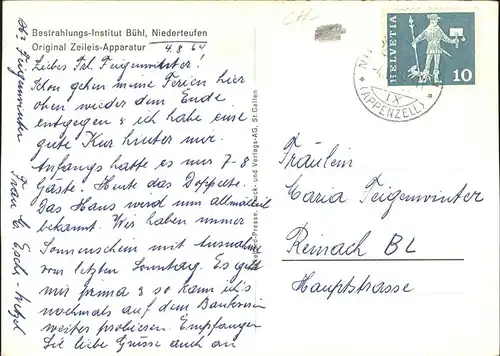 Bestrahlungs-Institut Bühl, Niederteufen
Original Zeileis-Apparatur
4.8.64
Liebes Frl. Feigenwinter!
Schon gehen meine Ferien hier
oben wieder dem Ende
entgegen & ich habe eine
gute Kur hinter mir.
Anfangs hatte es nur 7-8
Gäste. Heute das Doppelte.
Das Haus wird nun allmählich
bekannt. Wir haben immer
Sonnenschein mit Ausnahme
vom letzten Sonntag. Es geht
mir prima & so kann ich's
nochmals auf dem Bankverein
weiter probieren. Empfangen
Sie liebe Grüsse auch an
Feigenwinter
Frau
CH-
HELVETIA
10
(APPENZELL)
IX
Druck- und Verlags-AG, St. Gallen
Fräulein
Maria Feigenwinter
Reinach BL
Hauptstrasse